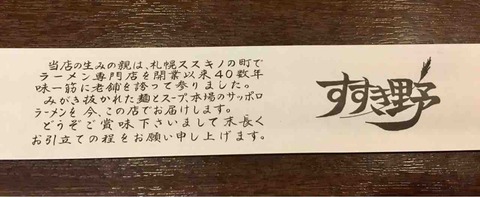 当店の生みの親は、札幌ススキノの町で
ラーメン専門店を開業以来40数年
味一筋に老舗を誇って参りました。
みがき抜かれた麺とスープ、本場のサッポロ
ラーメンを今、この店でお届けします。
どうぞご賞味下さいまして末長く
お引立ての程をお願い申し上げます。
すすき野